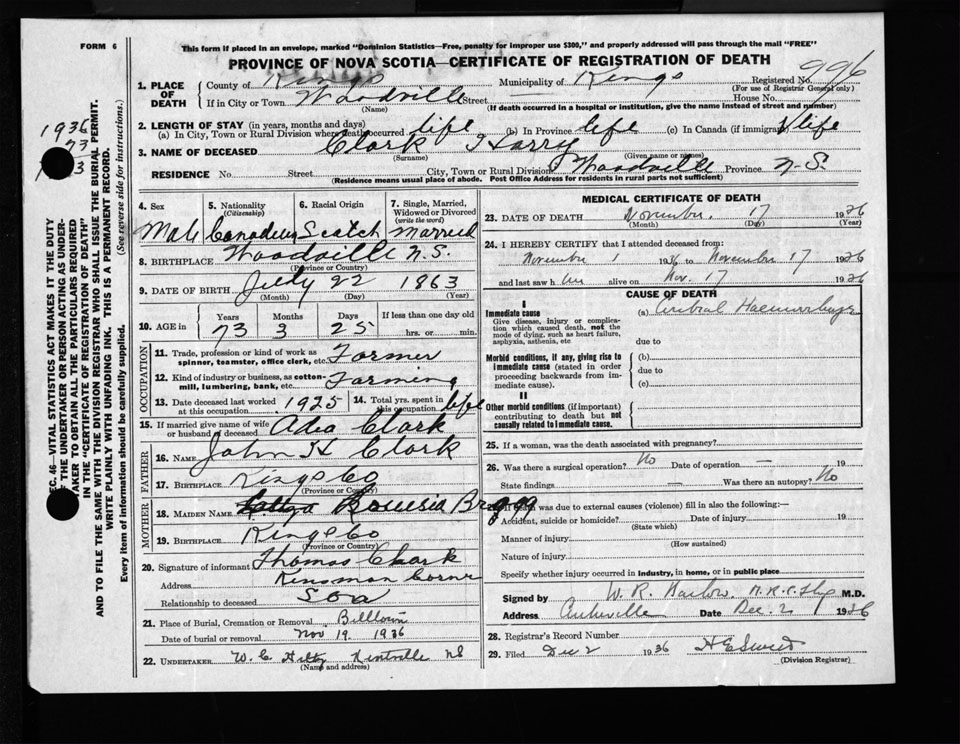 FORM 6
This form if placed in an envelope, marked "Dominion Statistics—Free, penalty for improper use $300," and properly addressed will pass through the mail "FREE"
PROVINCE OF NOVA SCOTIA—CERTIFICATE OF REGISTRATION OF DEATH
996
1. PLACE OF DEATH County of Kings Municipality of Kings Registered No.
(For use of Registrar General only)
If in City or Town Woodville Street House No.
(Name) (If death occurred in a hospital or institution, give the name instead of street and number)
2. LENGTH OF STAY (in years, months and days)
(a) In City, Town or Rural Division where death occurred life (b) In Province life (c) In Canada (if immigrant) life
3. NAME OF DECEASED Clark Harry
(Surname) (Given name or names)
RESIDENCE No. Street City, Town or Rural Division Woodville Province N.S.
(Residence means usual place of abode. Post Office Address for residents in rural parts not sufficient)
1936
73
EC. 46—VITAL STATISTICS ACT MAKES IT THE DUTY
OF THE UNDERTAKER OR PERSON ACTING AS UNDER-
TAKER TO OBTAIN ALL THE PARTICULARS REQUIRED
IN THE "CERTIFICATE OF REGISTRATION OF DEATH"
AND TO FILE THE SAME WITH THE DIVISION REGISTRAR WHO SHALL ISSUE THE BURIAL PERMIT.
WRITE PLAINLY WITH UNFADING INK. THIS IS A PERMANENT RECORD.
Every item of information should be carefully supplied. (See reverse side for instructions.)
4. Sex 5. Nationality (Citizenship) 6. Racial Origin 7. Single, Married, Widowed or Divorced (write the word)
Male Canadian Scotch Married
8. BIRTHPLACE Woodville N.S.
(Province or Country)
9. DATE OF BIRTH July 22 1863
(Month) (Day) (Year)
10. AGE in Years Months Days If less than one day old
73 3 25 hrs. or min.
OCCUPATION
11. Trade, profession or kind of work as spinner, teamster, office clerk, etc. Farmer
12. Kind of industry or business, as cotton-mill, lumbering, bank, etc. Farming
13. Date deceased last worked at this occupation 1925 14. Total yrs. spent in this occupation life
15. If married give name of wife or husband of deceased Ada Clark
FATHER
16. NAME John H Clark
17. BIRTHPLACE Kings Co
(Province or Country)
MOTHER
18. MAIDEN NAME
19. BIRTHPLACE Kings Co
(Province or Country)
20. Signature of informant Thomas Clark
Address Kinsman Corner
Relationship to deceased Son
21. Place of Burial, Cremation or Removal Billtown
Date of burial or removal Nov 19. 1936
22. UNDERTAKER W. C. Hiltz Kentville NS
(Name and address)
MEDICAL CERTIFICATE OF DEATH
23. DATE OF DEATH November 17 1936
(Month) (Day) (Year)
24. I HEREBY CERTIFY that I attended deceased from:
November 1 1936 to November 17 1936
and last saw him alive on Nov. 17 1936
CAUSE OF DEATH
I
Immediate cause (a) Cerebral Haemorrhage
Give disease, injury or complication which caused death, not the mode of dying, such as heart failure, asphyxia, asthenia, etc
due to
Morbid conditions, if any, giving rise to immediate cause (stated in order proceeding backwards from immediate cause). (b)
due to
(c)
II
Other morbid conditions (if important) contributing to death but not causally related to immediate cause.
25. If a woman, was the death associated with pregnancy?
26. Was there a surgical operation? No Date of operation — 19
State findings — Was there an autopsy? No
27. If death was due to external causes (violence) fill in also the following:—
Accident, suicide or homicide? Date of injury 19
(State which)
Manner of injury
(How sustained)
Nature of injury
Specify whether injury occurred in industry, in home, or in public place
Signed by W. R. Barlow M.D.
Address Date Dec. 2 1936
28. Registrar's Record Number
29. Filed Dec 2 1936
(Division Registrar)